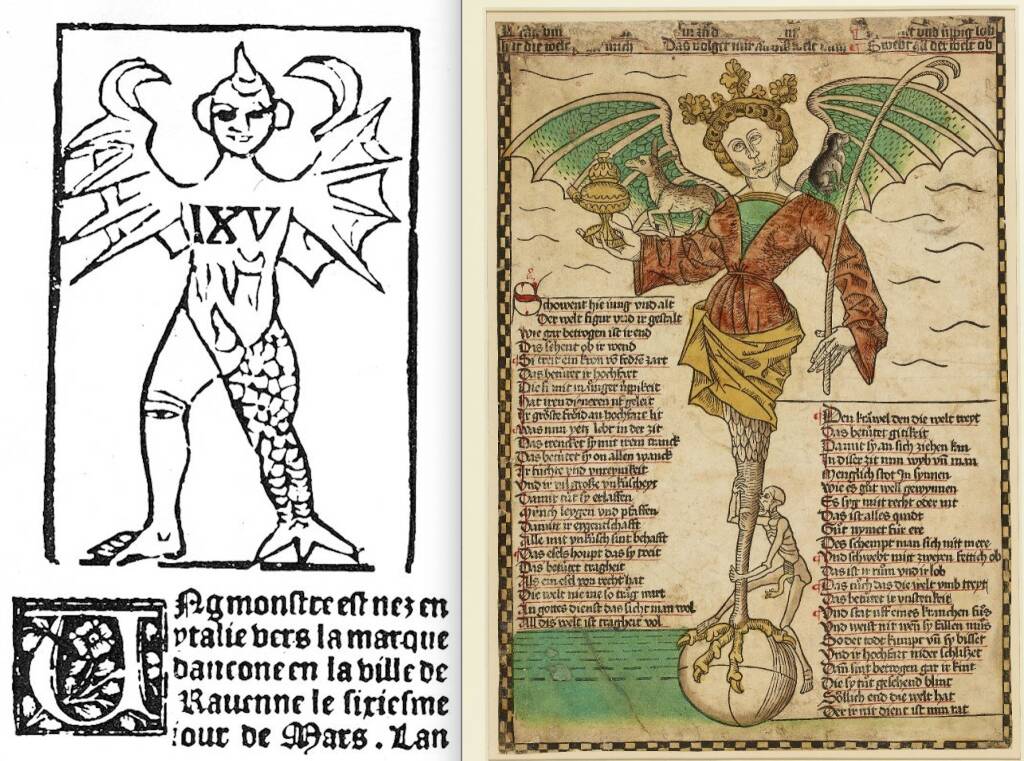 IXV
UNg monstre est nez en
ytalie vers la marque
dancone en la ville de
Rauenne le sixiesme
iour de Mars . Lan
Das volget mir
Swebt all der welt ob
Schowent hie iung vnd alt
Der welt figur vnd ir gestalt
Wie gar betrogen ist ir end
Das schent ob ir wend
Si treit ein kron vō federē zart
Das betütet ir hochfart
Die si mit
Hat iren dieneren
Ir gröste fröid an hochfart lit
Was nun yetz lebt in der zit
Das trencket sy mit irem tranck
Das betütet sy on allen wanck
Ir füchte vnd vnreinikeit
Vnd ir vil große vnküscheyt
Damit tůt sy erlaffen
Münch leygen vnd pfaffen
Damit ir eygenschafft
Alle mit vnküsch sint behafft
Das esels houpt das sy treit
Das betütet tragheit
Als ein esel von recht hat
Die welt nie me lo trag wart
An gottes dienst das sicht man wol
All dis welt ist tragheit vol
Den kräwel den die welt treyt
Das betütet gitikeit
Damit sy an sich ziehen kan
In diser zit nun wyb vn̄ man
Menglich stot in synnen
Wie es gůt well gewynnen
Es syg mit recht oder nit
Das ist alles
Gůt nymet für ere
Des schempt man sich nit mere
Vnd schwebt mit zweyen fettich ob
Das ist ir rům vnd ir lob
Das
Das betütet ir vnstetikeit
Vnd stat vff eines kranchen fůs
Vnd weist nit wen sy fallen můs
So der tod kumpt vn̄ sy bisset
Vnd ir hochfart nider schlisset
Dan̄ sint betrogen gar ir kint
Die sy tůt gesehend blint
Söllich end die welt hat
Der ir nit dient ist min rat